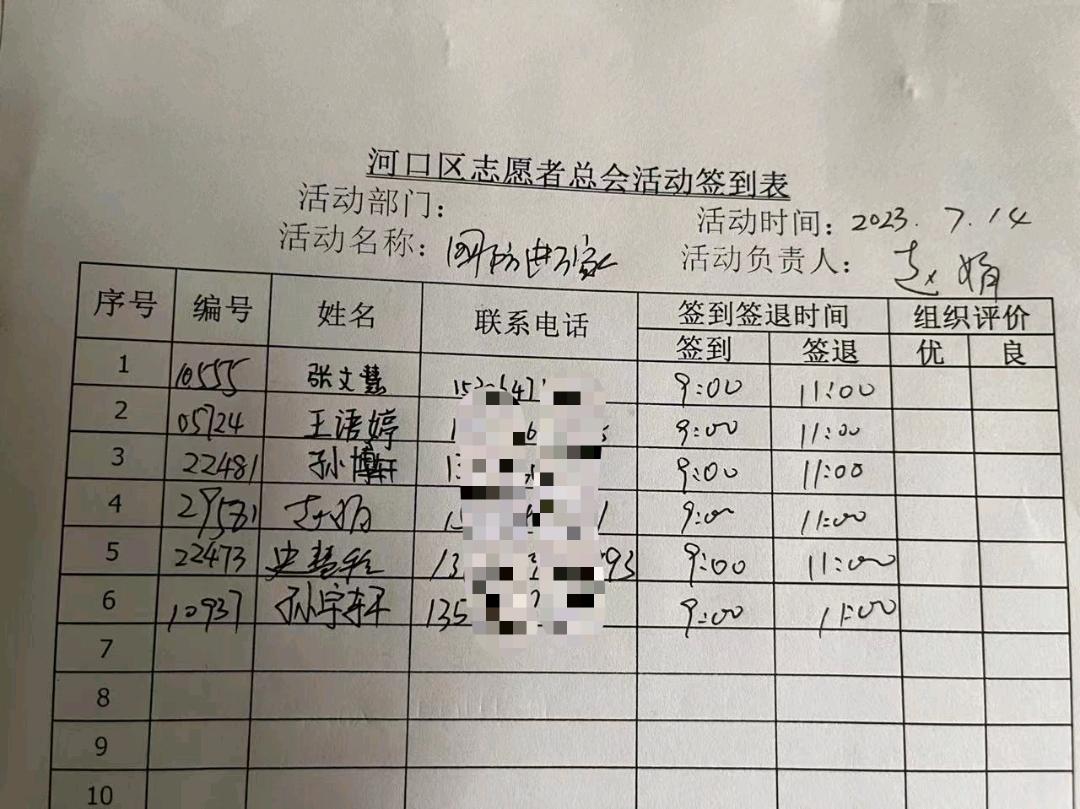 河口区志愿者总会活动签到表
活动部门：
活动时间：2023.7.14
活动名称：国防进万家
活动负责人：赵娟
序号 编号 姓名 联系电话 签到签退时间 组织评价
签到 签退 优 良
1 10555 张文慧 9:00 11:00
2 05724 王语婷 9:00 11:00
3 22481 孙博轩 9:00 11:00
4 29581 赵娟 9:00 11:00
5 22473 史慧 9:00 11:00
6 10937 孙宇轩 135 9:00 11:00
7
8
9
10